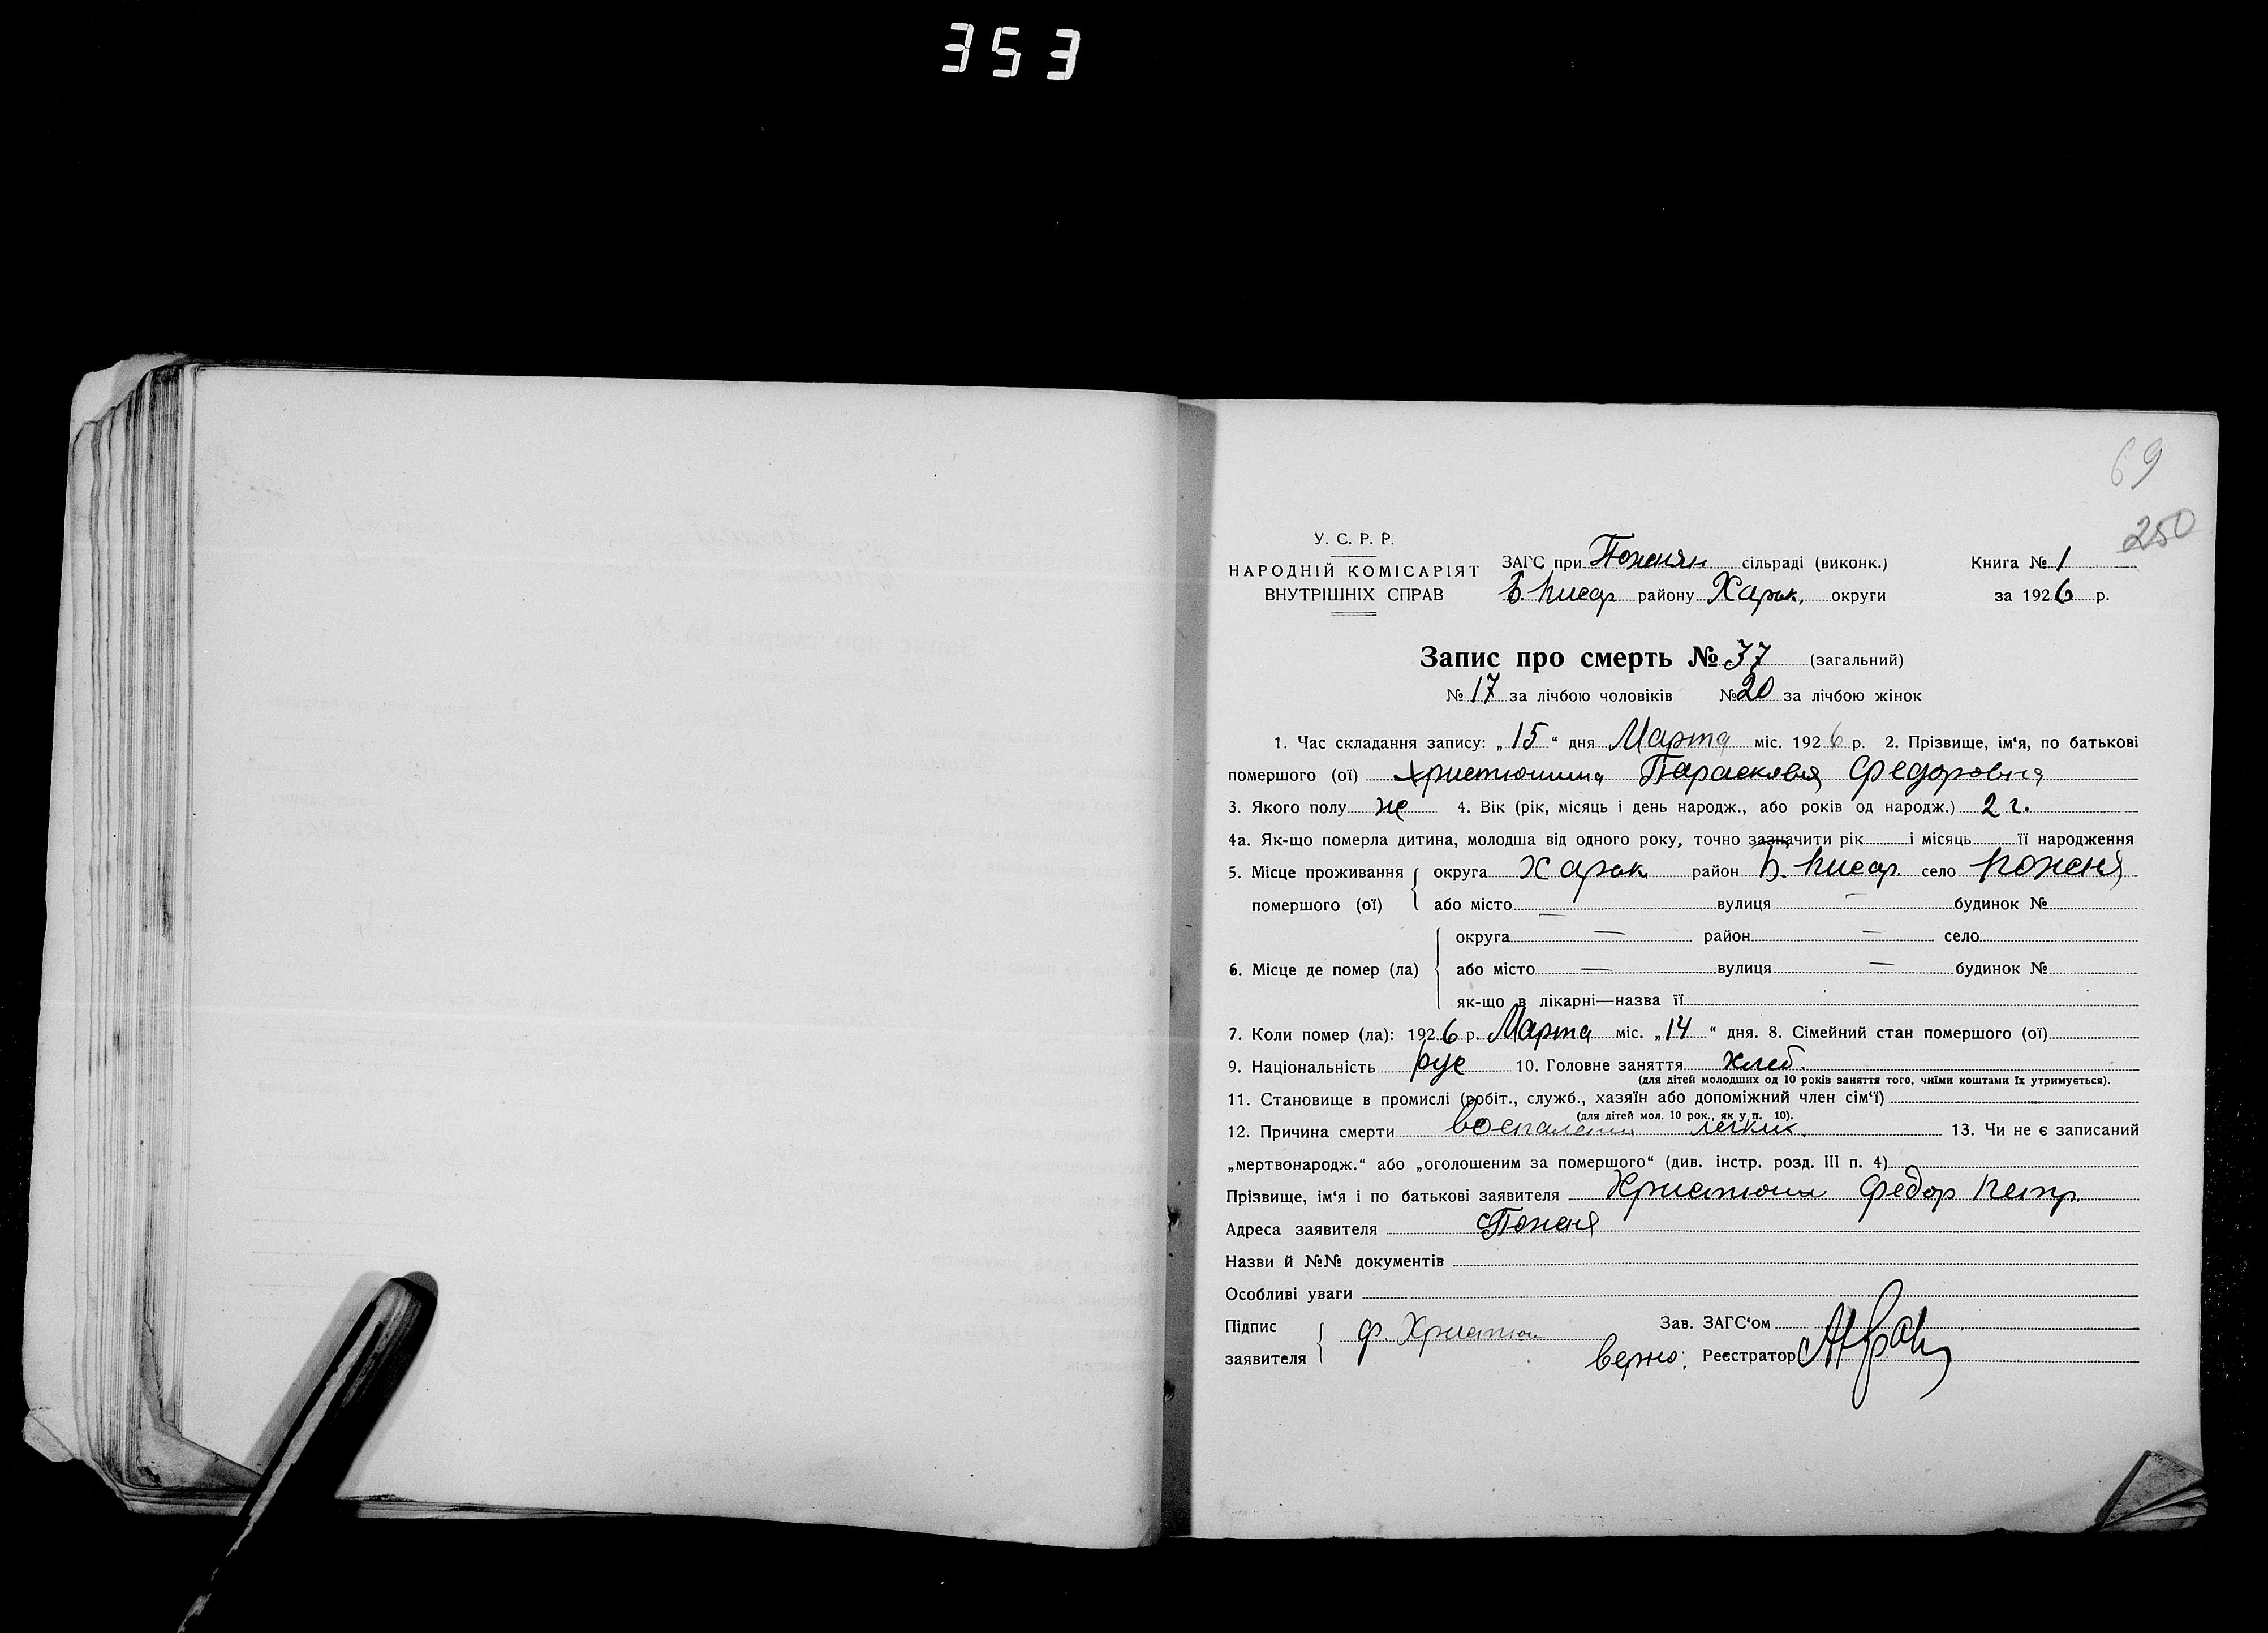 353
69
250
У. С. Р. Р.
НАРОДНІЙ КОМІСАРІЯТ
ВНУТРІШНІХ СПРАВ
ЗАГС при Поженян сільраді (виконк.)
Б. Писар району Харьк. округи
Книга № 1
за 1926 р.
Запис про смерть № 37 (загальний)
№ 17 за лічбою чоловіків № 20 за лічбою жінок
1. Час складання запису: „15“ дня Марта міс. 1926 р. 2. Прізвище, ім‘я, по батькові
помершого (ої) Христюшина Параскевия Федоровна
3. Якого полу же 4. Вік (рік, місяць і день народж., або років од народж.) 2 г.
4а. Як-що померла дитина, молодша від одного року, точно зазначити рік і місяць її народження
5. Місце проживання округа Харьк район Б. Писар. село Поженя
помершого (ої) або місто — вулиця — будинок №
округа — район — село
6. Місце де помер (ла) або місто — вулиця — будинок №
як-що в лікарні—назва її
7. Коли помер (ла): 1926 р. Марта міс. „14“ дня. 8. Сімейний стан помершого (ої)
9. Національність рус 10. Головне заняття хлеб.
(для дітей молодших од 10 років заняття того, чиїми коштами їх утримується).
11. Становище в промислі (робіт., служб., хазяїн або допоміжний член сім‘ї)
(для дітей мол. 10 рок., як у п. 10).
12. Причина смерти воспаления легких. 13. Чи не є записаний
„мертвонародж.“ або „оголошеним за помершого“ (див. інстр. розд. III п. 4)
Прізвище, ім‘я і по батькові заявителя Христюши Федор Петр.
Адреса заявителя с Поженя
Назви й №№ документів
Особливі уваги
Підпис
заявителя Ф. Христюш
Зав. ЗАГС‘ом
верно: Реєстратор